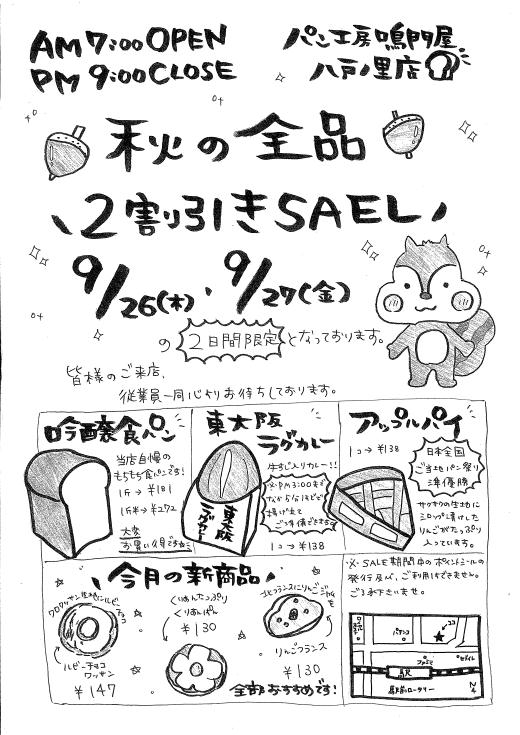 AM 7:00 OPEN
PM 9:00 CLOSE
パン工房鳴門屋
八戸ノ里店
秋の全品
2割引きSAEL
9/26(木)・9/27(金)
の2日間限定となっております。
皆様のご来店、
従業員一同心よりお待ちしております。
吟醸食パン
当店自慢の
もちもち食パンです!
1斤→¥181
1斤半→¥272
大変
お買い得です
東大阪
ラグカレー
牛すじ入りカレー!!
※PM3:00まで
ならほどで
揚げ立て
ご準備できます
東大阪
ラグカレー
1コ→¥138
アップルパイ
1コ→¥138
日本全国
ご当地パン祭り
準優勝
サクサクの生地に
シロップ漬けした
りんごがたっぷり
入っています。
今月の新商品
クロワッサン生地にルビー
チョコ
ルビーチョコ
ワッサン
¥147
くりあんたっぷり
くりあんぱん
¥130
北フランスにりんごジャムを
りんごフランス
¥130
全部おすすめです!
※SALE期間中のポイントシールの
発行及び、ご利用はできません。
ご了承下さいませ。
パチンコ
ココ
ファミマ
セブイレ
駅
駅前ロータリー
N